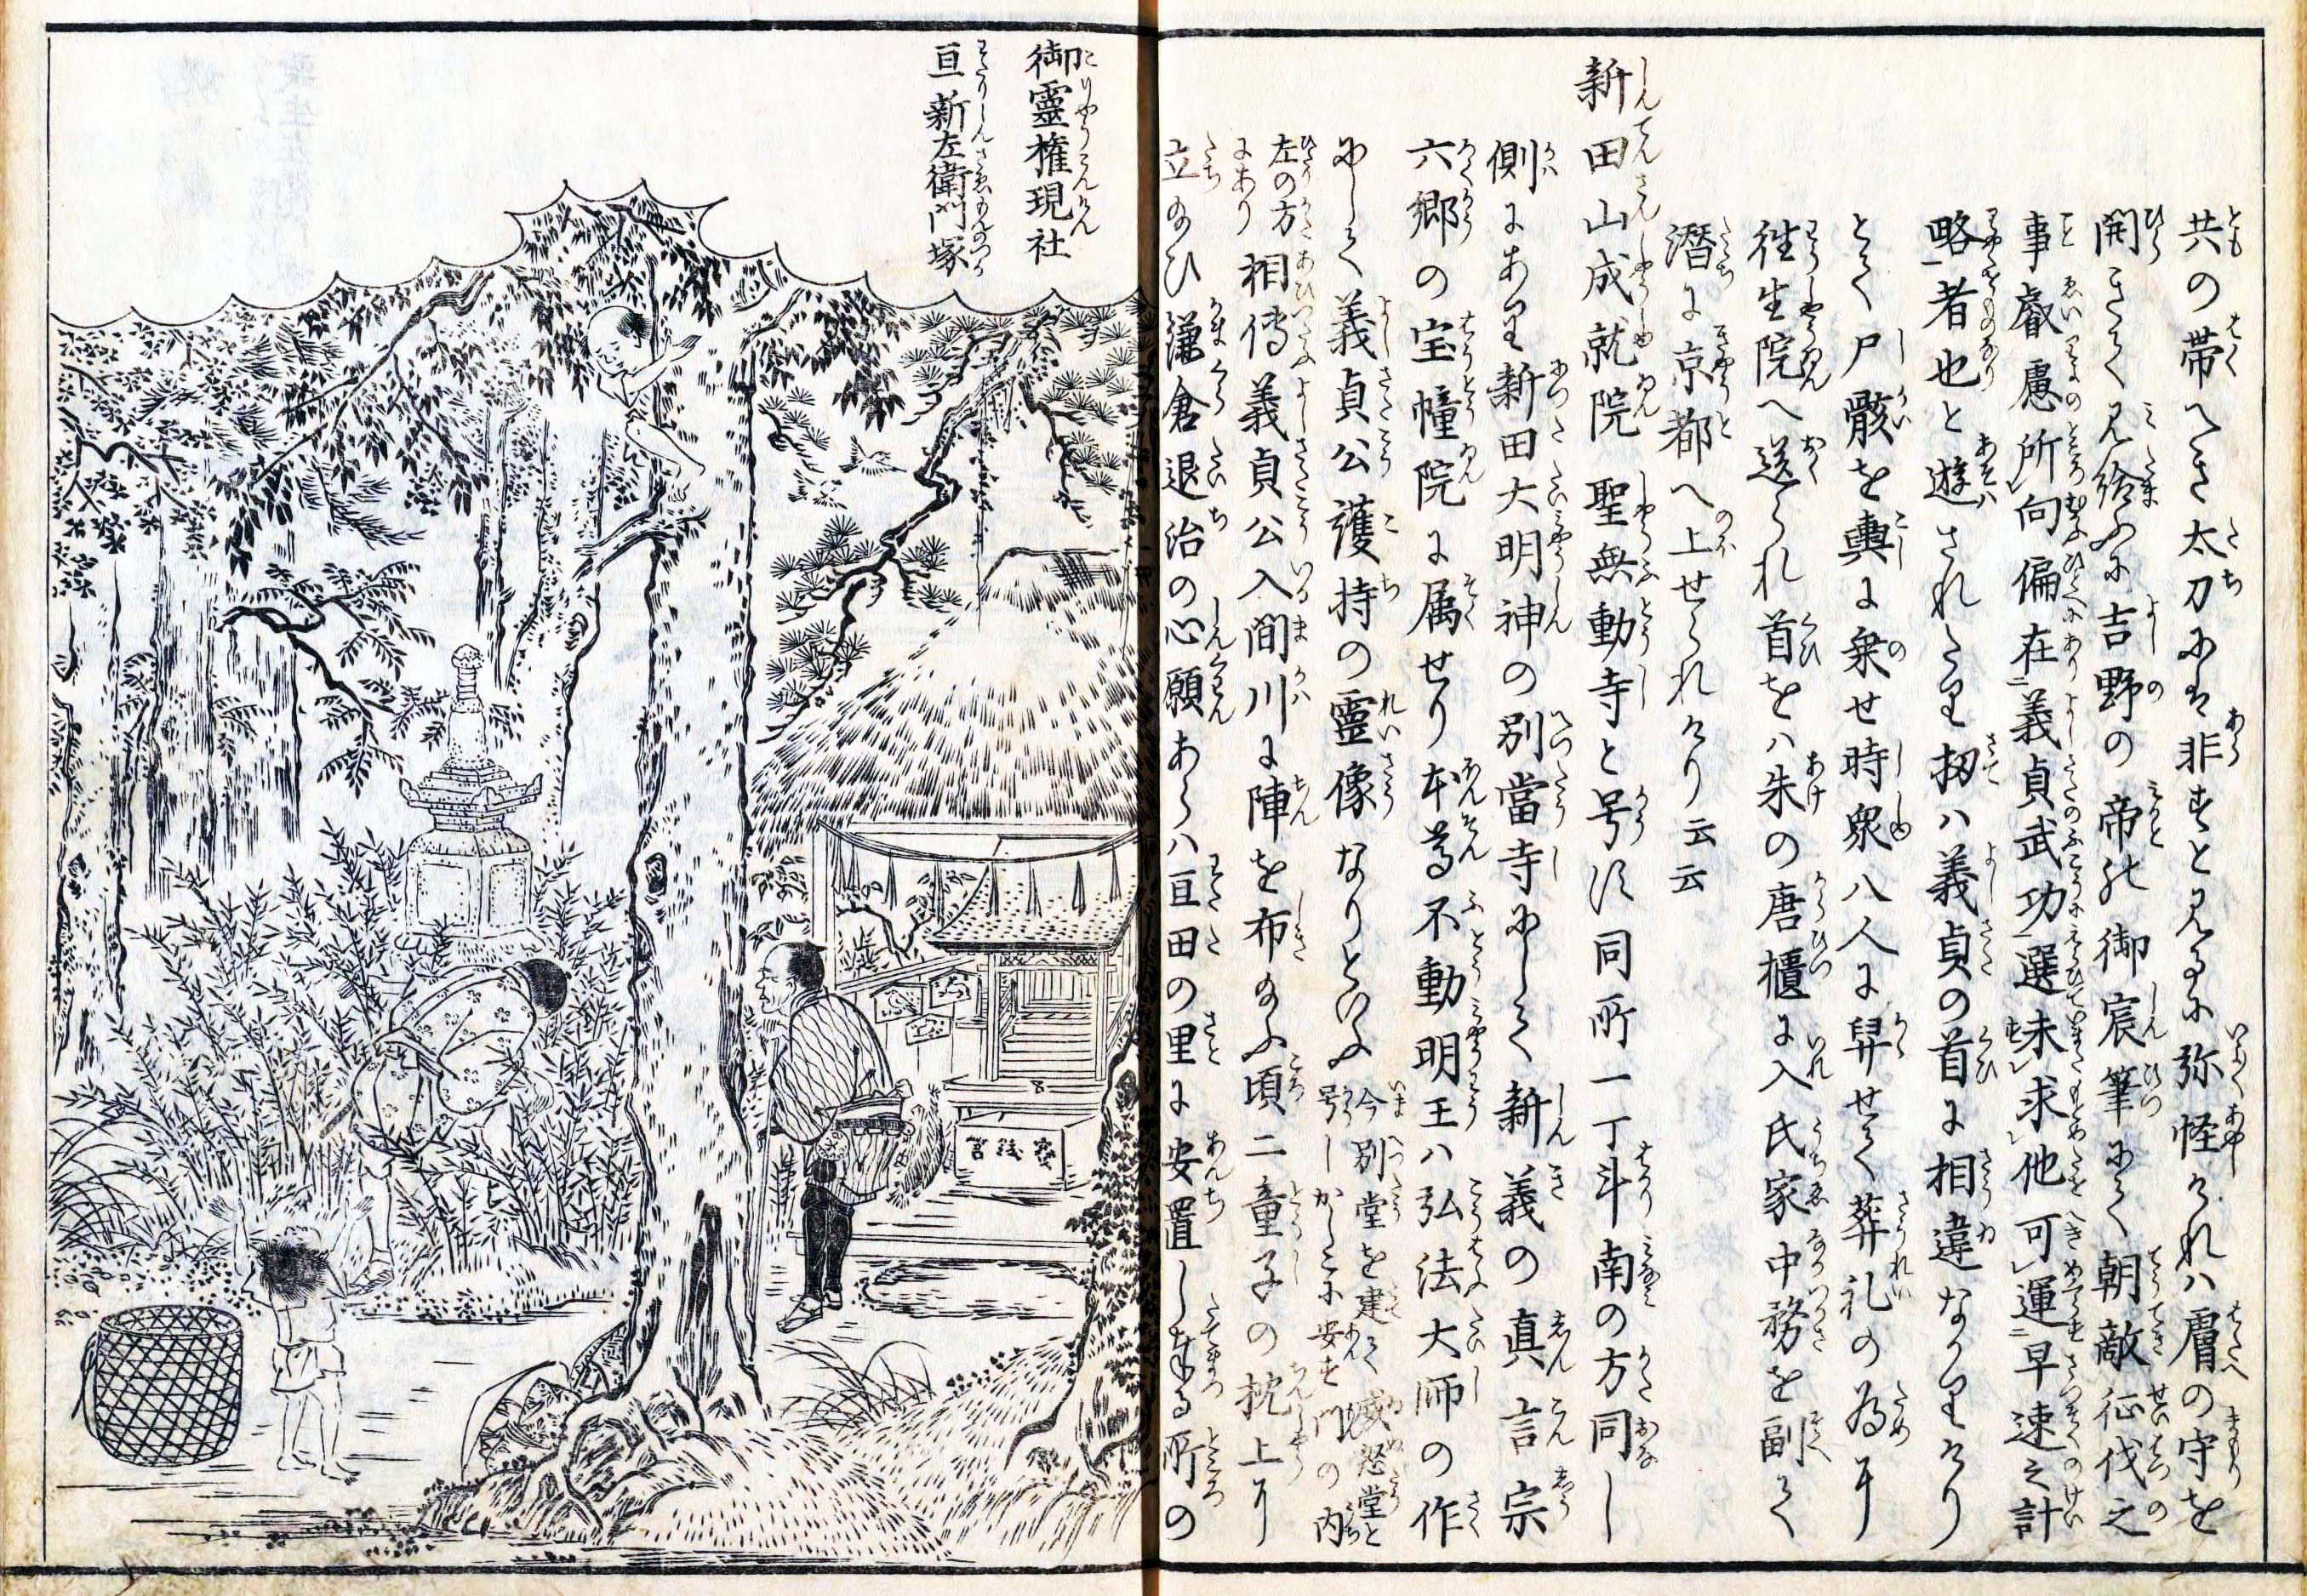 共の帯へき太刀にも非すと見るに弥怪けれハ膚の守を
開きて見給ふに吉野の帝の御宸筆にて朝敵征伐之
事叡慮所向偏在義貞武功選未求他可運早速之計
略者也と遊されたり扨ハ義貞の首に相違なかりけり
とて尸骸を輿に乗せ時衆八人に舁せて葬礼の為に
往生院へ送られ首をハ朱の唐櫃に入氏家中務を副て
潜に京都へ上せられけり云云
新田山成就院 聖無動寺と号す同所一丁斗南の方同し
側にあり新田大明神の別當寺にして新義の真言宗
六郷の宝幢院に属せり本尊不動明王ハ弘法大師の作
にして義貞公護持の霊像なりといふ今別堂を建て威怒堂と
号しかしこに安を門の内
左の方
にあり相傳義貞公入間川に陣を布給ふ頃二童子の枕上に
立給ひ鎌倉退治の心願あらハ亘田の里に安置し奉る所の
御靈権現社
亘新左衛門塚